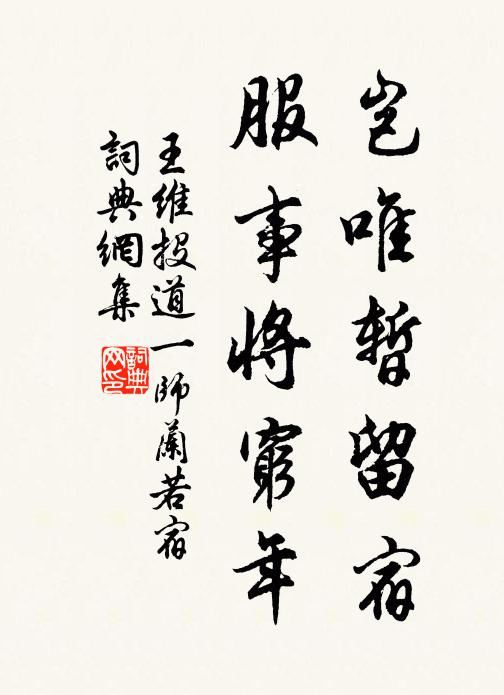 豈唯暫留宿
服事將窮年
王維投道一師蘭若宿
詞典網集
詞典
网印